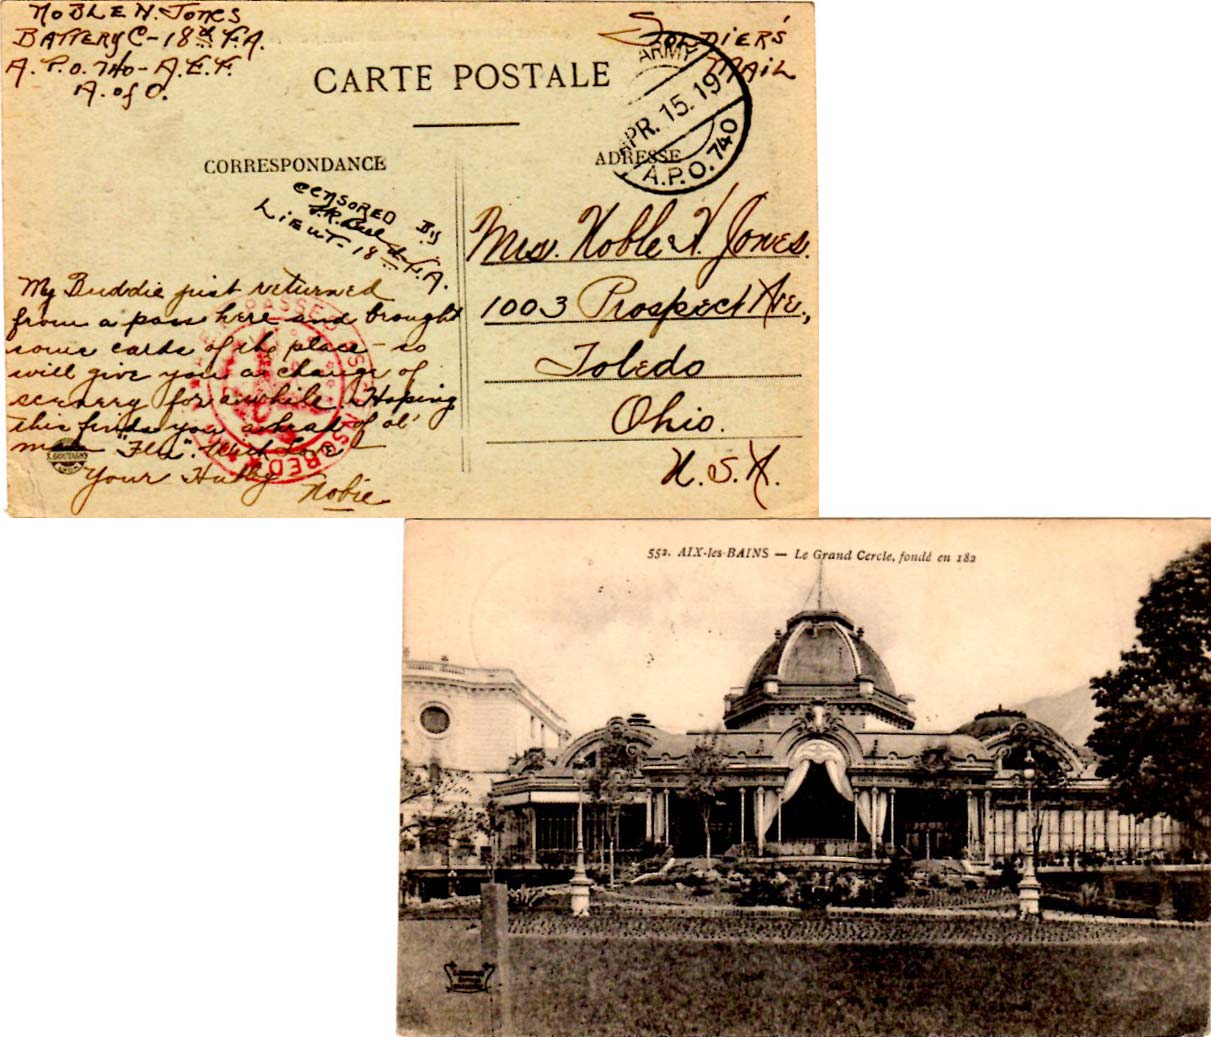 NOBLE N. JONES
BATTERY C - 18th F.A.
A.P.O. 740 - A.E.F.
A. of O.
SOLDIERS'
MAIL
CARTE POSTALE
ARMY
APR. 15. 19
A.P.O. 740
CORRESPONDANCE
ADRESSE
CENSORED By
LIEUT - 18th F.A.
My Buddie just returned
from a pass here and brought
some cards of the place - so
will give you a change of
scenery for awhile. Hoping
this finds you ahead of ol'
man "Flu". With Love
Your Hubby
Nobie
PASSED AS CENSORED
Mrs. Noble N. Jones.
1003 Prospect Ave.,
Toledo
Ohio.
U.S.A.
552. AIX-les-BAINS — Le Grand Cercle, fondé en 182